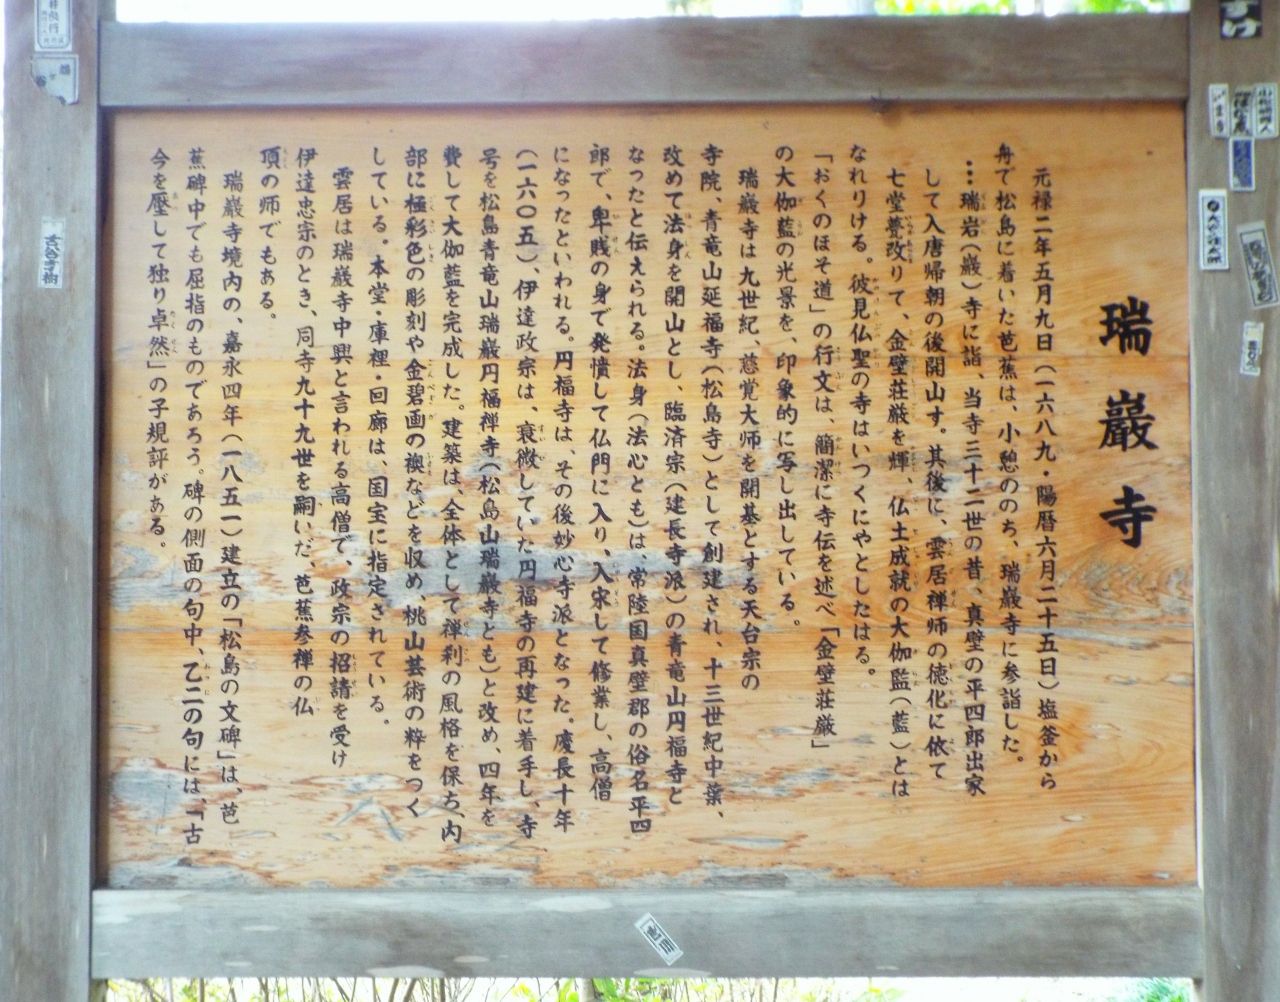 瑞巖寺
元禄二年五月九日（一六八九・陽暦六月二十五日）塩釜から
舟で松島に着いた芭蕉は、小憩ののち、瑞巌寺に参詣した。
…瑞岩（巖）寺に詣、当寺三十二世の昔、真壁の平四郎出家
して入唐帰朝の後開山す。其後に、雲居禅師の徳化に依て
七堂甍改りて、金壁荘厳を輝、仏土成就の大伽監（藍）とは
なれりける。彼見仏聖の寺はいつくにやとしたはる。
「おくのほそ道」の行文は、簡潔に寺伝を述べ「金壁荘厳」
の大伽藍の光景を、印象的に写し出している。
瑞巌寺は九世紀、慈覚大師を開基とする天台宗の
寺院、青竜山延福寺（松島寺）として創建され、十三世紀中葉、
改めて法身を開山とし、臨済宗（建長寺派）の青竜山円福寺と
なったと伝えられる。法身（法心とも）は、常陸国真壁郡の俗名平四
郎で、卑賎の身で発憤して仏門に入り、入宋して修業し、高僧
になったといわれる。円福寺は、その後妙心寺派となった。慶長十年
（一六〇五）、伊達政宗は、衰微していた円福寺の再建に着手し、寺
号を松島青竜山瑞巖円福禅寺（松島山瑞巖寺とも）と改め、四年を
費して大伽藍を完成した。建築は、全体として禅刹の風格を保ち、内
部に極彩色の彫刻や金碧画の襖などを収め、桃山芸術の粋をつく
している。本堂・庫裡・回廊は、国宝に指定されている。
雲居は瑞巌寺中興と言われる高僧で、政宗の招請を受け
伊達忠宗のとき、同寺九十九世を嗣いだ、芭蕉参禅の仏
頂の師でもある。
瑞巖寺境内の、嘉永四年（一八五一）建立の「松島の文碑」は、芭
蕉碑中でも屈指のものであろう。碑の側面の句中、乙二の句には、「古
今を壓して独り卓然」の子規評がある。